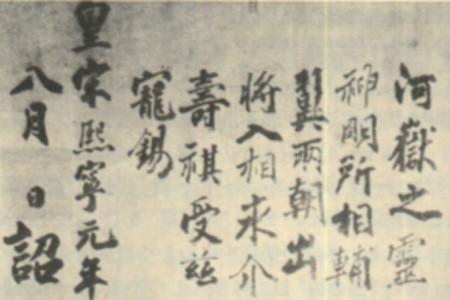 河嶽之靈
神明所相輔
翼兩朝出
將入相永介
壽祺受茲
寵錫
皇宋熙寧元年
八月日詔